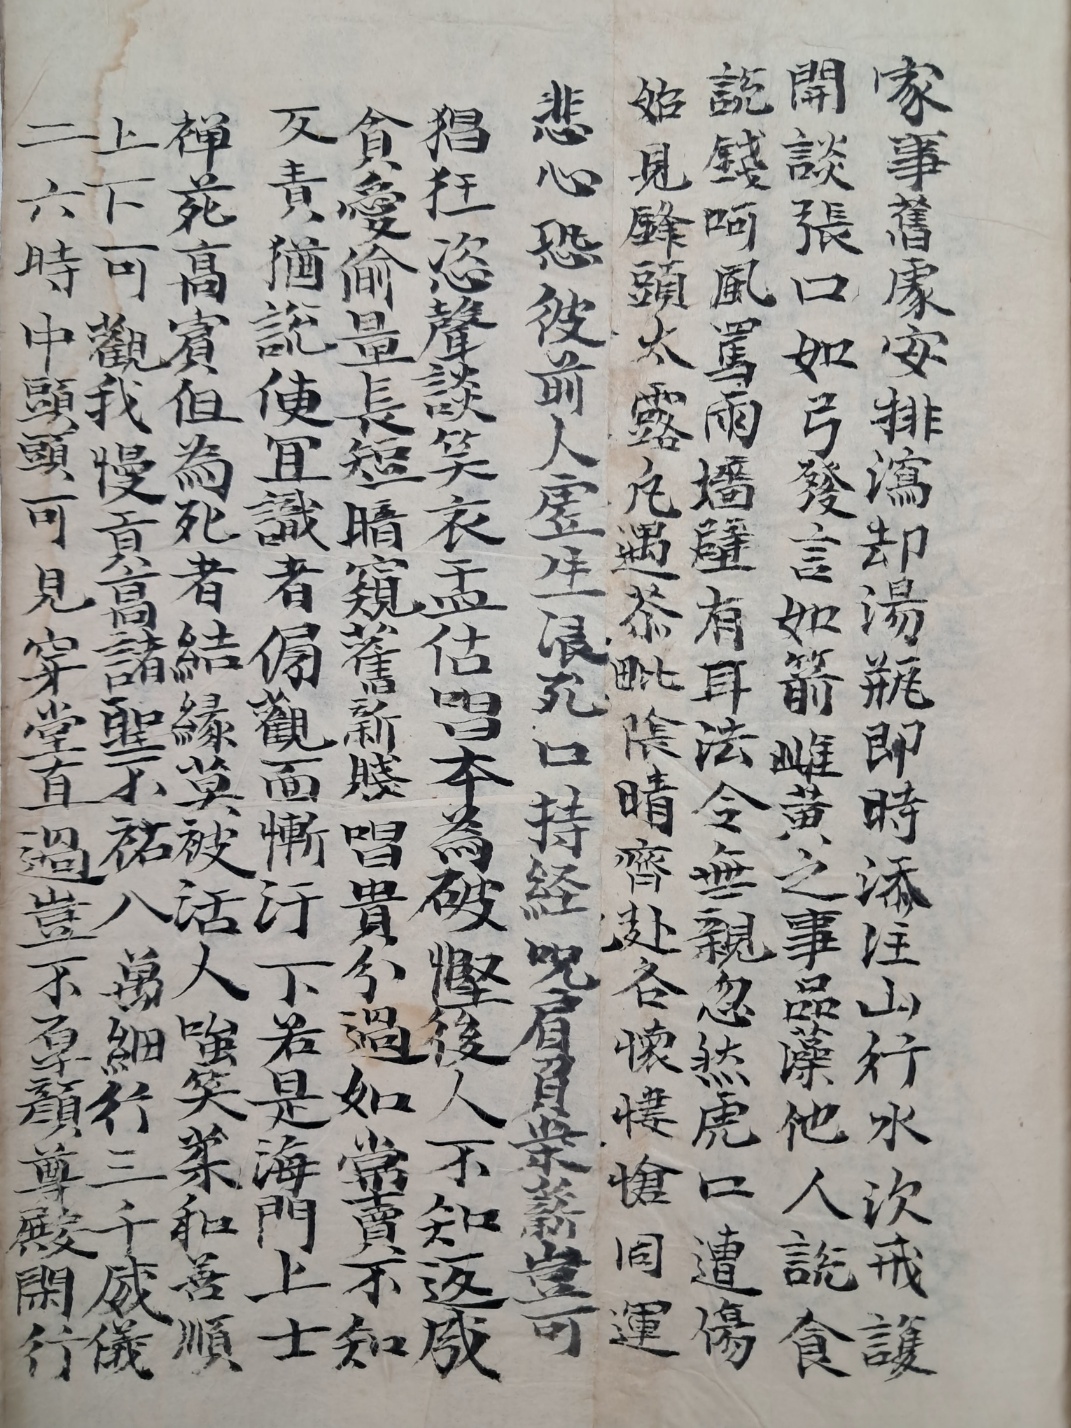 家事舊處安排瀉却湯瓶即時添注山行水次戒護
開談張口如弓發言如箭雌黃之事品藻他人說食
說錢呵風罵雨墻壁有耳法令無親忽然虎口遭傷
始見鋒頭太露凡遇荼毗陰晴齊赴各懷悽愴同運
悲心恐彼前人虛生浪死口持経呪肩負柴薪豈可
猖狂恣聲談笑衣盂估唱本為破慳後人不知返成
貪愛偷量長短暗窺舊新賤唱貴分過如常賣不知
反責猶說便宜識者傍觀面慚汗下若是海門上士
禅苑高賓但為死者結緣莫被活人嗤笑柔和善順
上下可觀我慢貢高諸聖不祐八萬細行三千威儀
二六時中頭頭可見穿堂直過豈不厚顏尊殿閑行